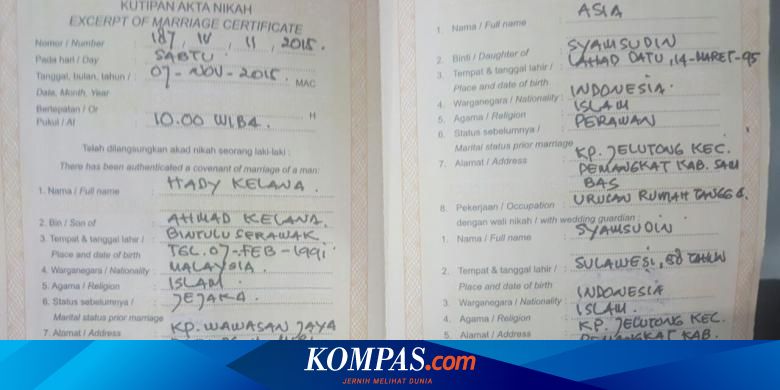 KUTIPAN AKTA NIKAH
EXCERPT OF MARRIAGE CERTIFICATE
Nomor / Number : 187, IV, 11, 2015.
Pada hari / Day : SABTU.
Tanggal, bulan, tahun / : 07-NOV-2015. MAC
Date, Month, Year
Bertepatan / Or H
Pukul / At : 10.00 WIBA.
Telah dilangsungkan akad nikah seorang laki-laki :
There has been authenticated a covenant of marriage of a man:
1. Nama / Full name : HADY KELANA.
2. Bin / Son of : AHMAD KELANA.
3. Tempat & tanggal lahir / : BINTULU SERAWAK.
Place and date of birth TGL. 07-FEB-1991
4. Warganegara / Nationality : MALAYSIA.
5. Agama / Religion : ISLAM.
6. Status sebelumnya / : JEJAKA.
Marital status prior marriage
7. Alamat / Address : KP. WAWASAN JAYA
1. Nama / Full name : ASIA
2. Binti / Daughter of : SYAMSUDIN
3. Tempat & tanggal lahir / : LAHAD DATU, 14-MARET-95
Place and date of birth
4. Warganegara / Nationality : INDONESIA.
5. Agama / Religion : ISLAM
6. Status sebelumnya / : PERAWAN
Marital status prior marriage
7. Alamat / Address : KP. JELUTONG KEC.
PEMANGKAT KAB. SAM
BAS
8. Pekerjaan / Occupation : URUSAN RUMAH TANGGA.
dengan wali nikah / with wedding guardian :
1. Nama / Full name : SYAMSUDIN
2. Tempat & tanggal lahir / : SULAWESI, 58 TAHUN
Place and date of birth
3. Warganegara / Nationality : INDONESIA
4. Agama / Religion : ISLAM.
5. Alamat / Address : KP. JELUTONG KEC.
PEMANGKAT KAB.
KOMPAS.com
JERNIH MELIHAT DUNIA